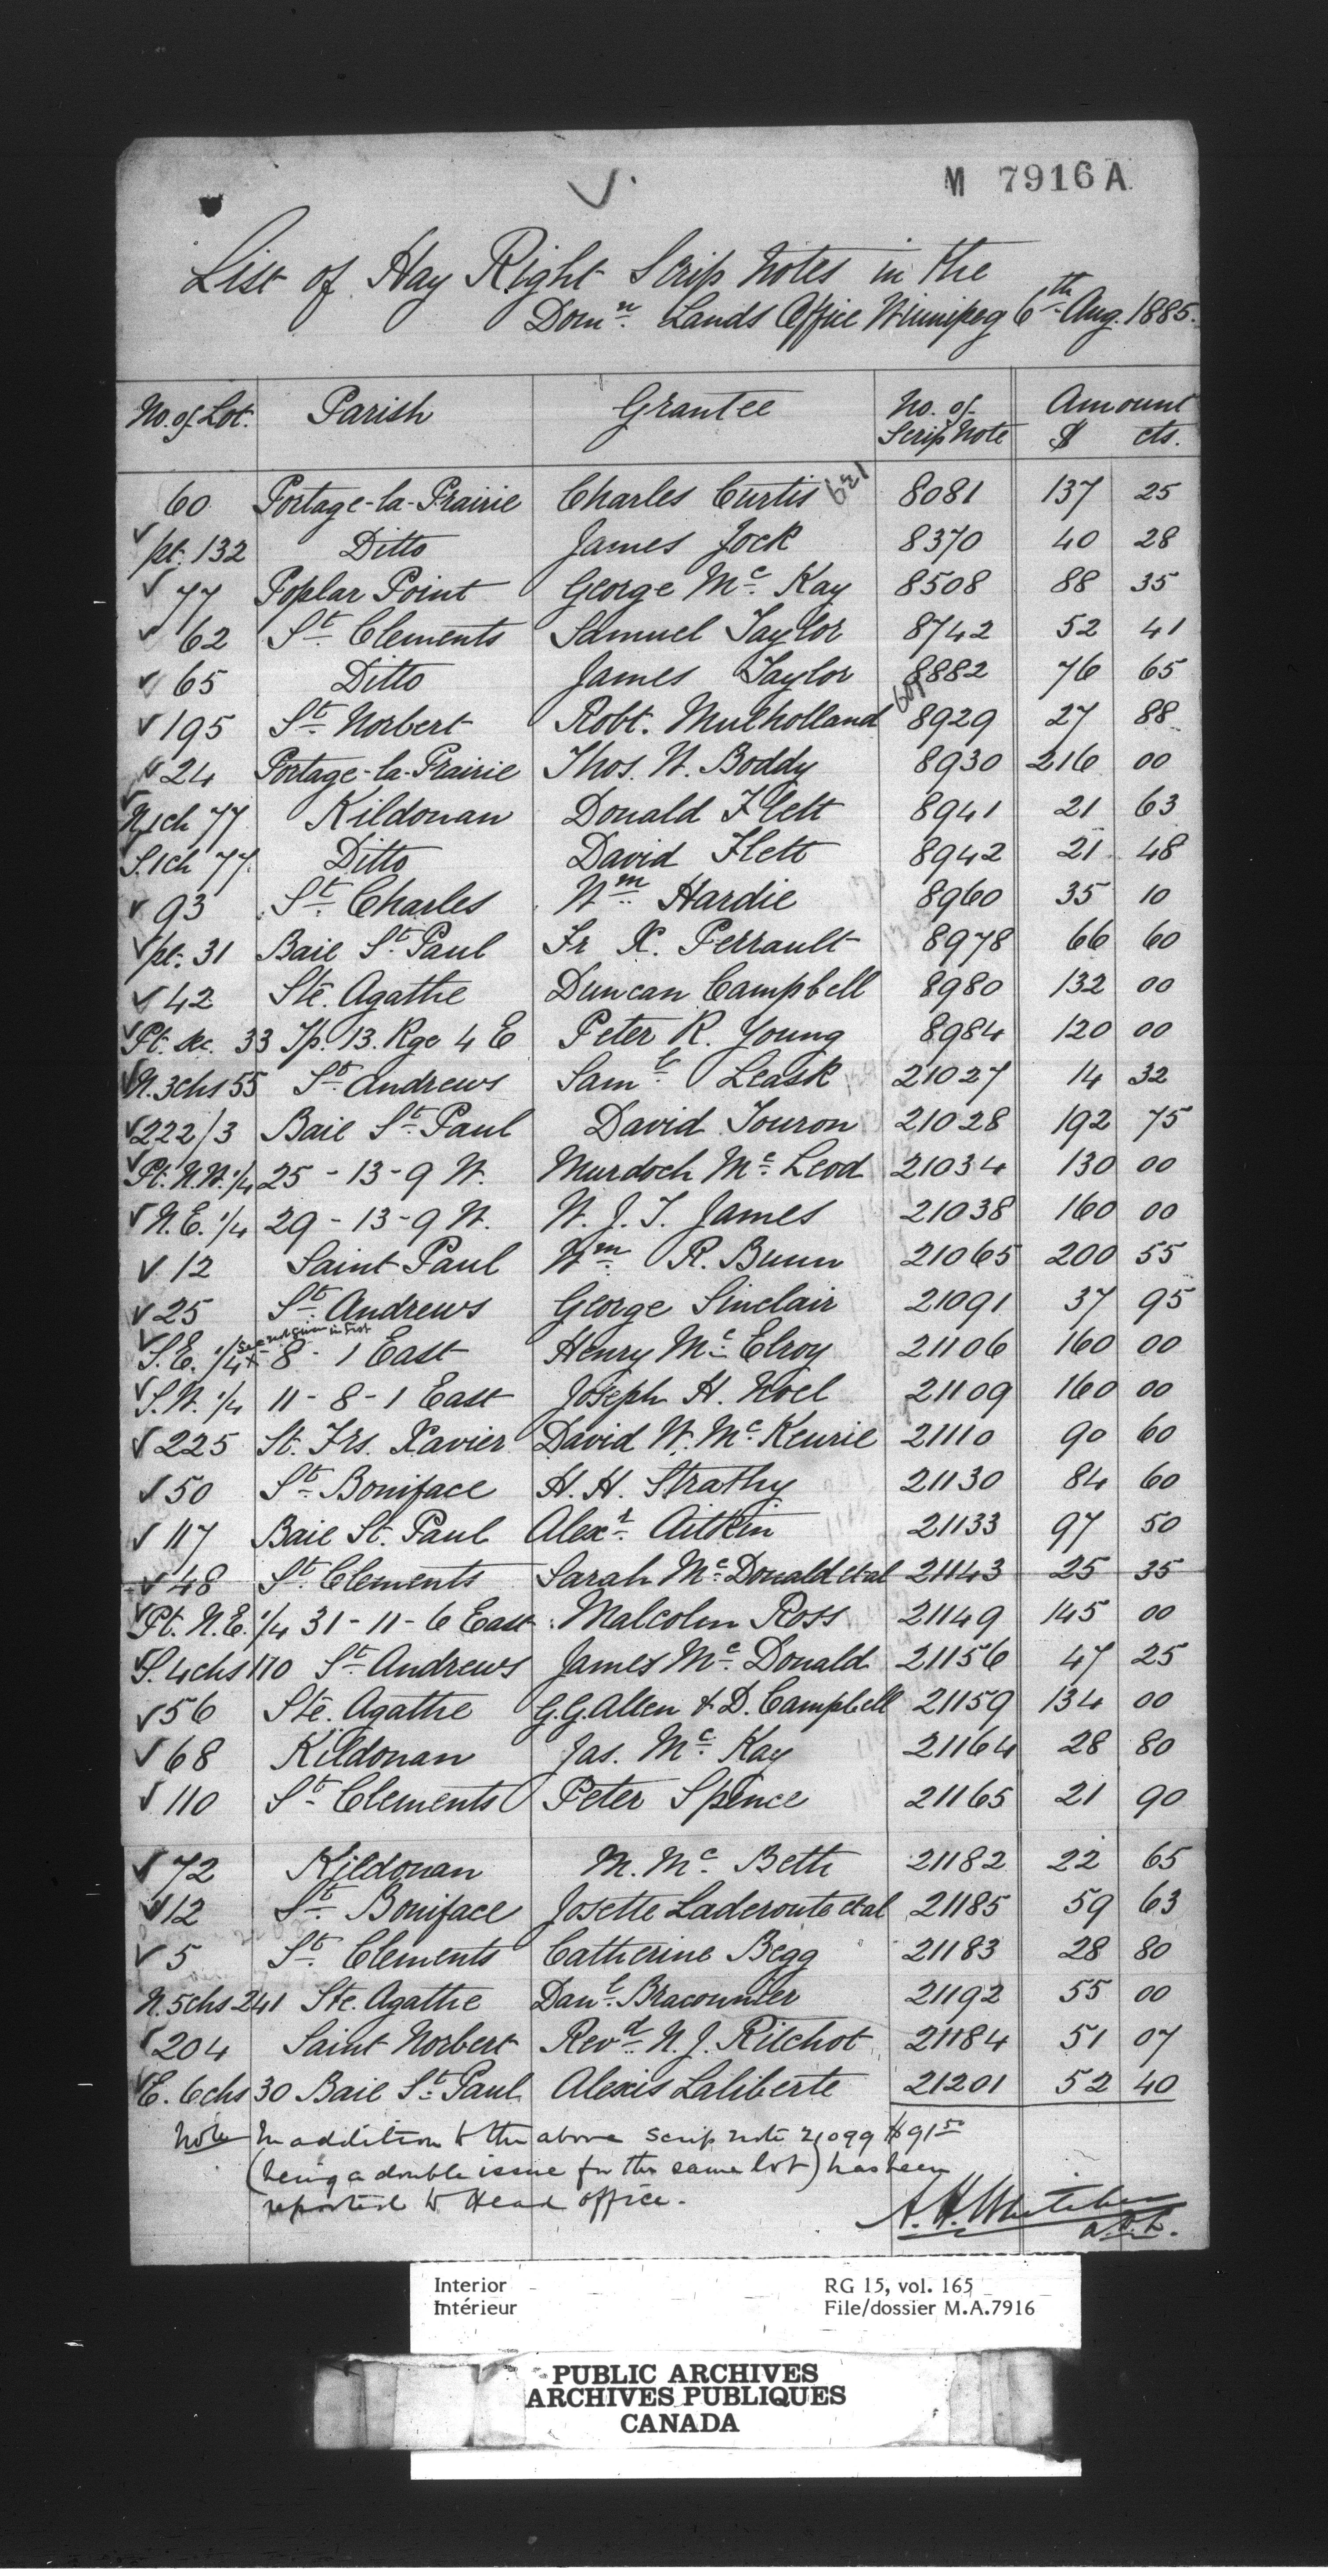 M 7916 A
List of Hay Right Scrip Notes in the
Domn. Lands Office Winnipeg 6th Aug. 1885.
No. of Lot. Parish Grantee No. of Scrip Note Amount $ cts.
60 Portage-la-Prairie Charles Curtis 8081 137 25
✓ pt. 132 Ditto James Jock 8370 40 28
✓ 77 Poplar Point George Mc. Kay 8508 88 35
✓ 62 St. Clements Samuel Taylor 8742 52 41
✓ 65 Ditto James Taylor 8882 76 65
✓ 195 St. Norbert Robt. Mulholland 8929 27 88
✓ 24 Portage-la-Prairie Thos. W. Boddy 8930 216 00
✓ N. 1ch 77 Kildonan Donald Flett 8941 21 63
S. 1ch 77. Ditto David Flett 8942 21 48
✓ 93 St. Charles Wm. Hardie 8960 35 10
✓ pt. 31 Baie St. Paul Fr X. Perrault 8978 66 60
✓ 42 Ste. Agathe Duncan Campbell 8980 132 00
✓ Pt. Sec. 33 Tp. 13. Rge 4 E Peter R. Young 8984 120 00
✓ N. 3chs 55 St. Andrews Saml. Leask 21027 14 32
✓ 222/3 Baie St. Paul David Touron 21028 192 75
✓ Pt. N.W. 1/4 25 - 13 - 9 W. Murdoch Mc. Leod 21034 130 00
✓ N.E. 1/4 29 - 13 - 9 W. W. J. T. James 21038 160 00
✓ 12 Saint Paul Wm. R. Bunn 21065 200 55
✓ 25 St. Andrews George Sinclair 21091 37 95
✓ S.E. 1/4 x 8 - 1 East Henry Mc. Elroy 21106 160 00
✓ S.W. 1/4 11 - 8 - 1 East Joseph H. Noel 21109 160 00
✓ 225 St. Frs. Xavier David W. Mc. Kenrie 21110 90 60
✓ 50 St. Boniface H. H. Strathy 21130 84 60
✓ 117 Baie St. Paul Alexr. Aitkin 21133 97 50
✓ 48 St. Clements Sarah Mc. Donald et al 21143 25 35
✓ Pt. N.E. 1/4 31 - 11 - 6 East Malcolm Ross 21149 145 00
✓ S. 4chs 170 St. Andrews James Mc. Donald 21156 47 25
✓ 56 Ste. Agathe G.G. Allen & D. Campbell 21159 134 00
✓ 68 Kildonan Jas. Mc. Kay 21164 28 80
✓ 110 St. Clements Peter Spence 21165 21 90
✓ 72 Kildonan M. Mc. Beth 21182 22 65
✓ 12 St. Boniface Josette Laderoute et al 21185 59 63
✓ 5 St. Clements Catherine Begg 21183 28 80
N. 5chs 241 Ste. Agathe Danl. Braconnier 21192 55 00
✓ 204 Saint Norbert Revd. N. J. Ritchot 21184 51 07
✓ E. 6chs 30 Baie St. Paul Alexis Laliberte 21201 52 40
Note In addition to the above scrip note 21099 $91 50
(being a double issue for the same lot) has been
reported to Head office.
Interior RG 15, vol. 165
Intérieur File/dossier M.A.7916
PUBLIC ARCHIVES
ARCHIVES PUBLIQUES
CANADA